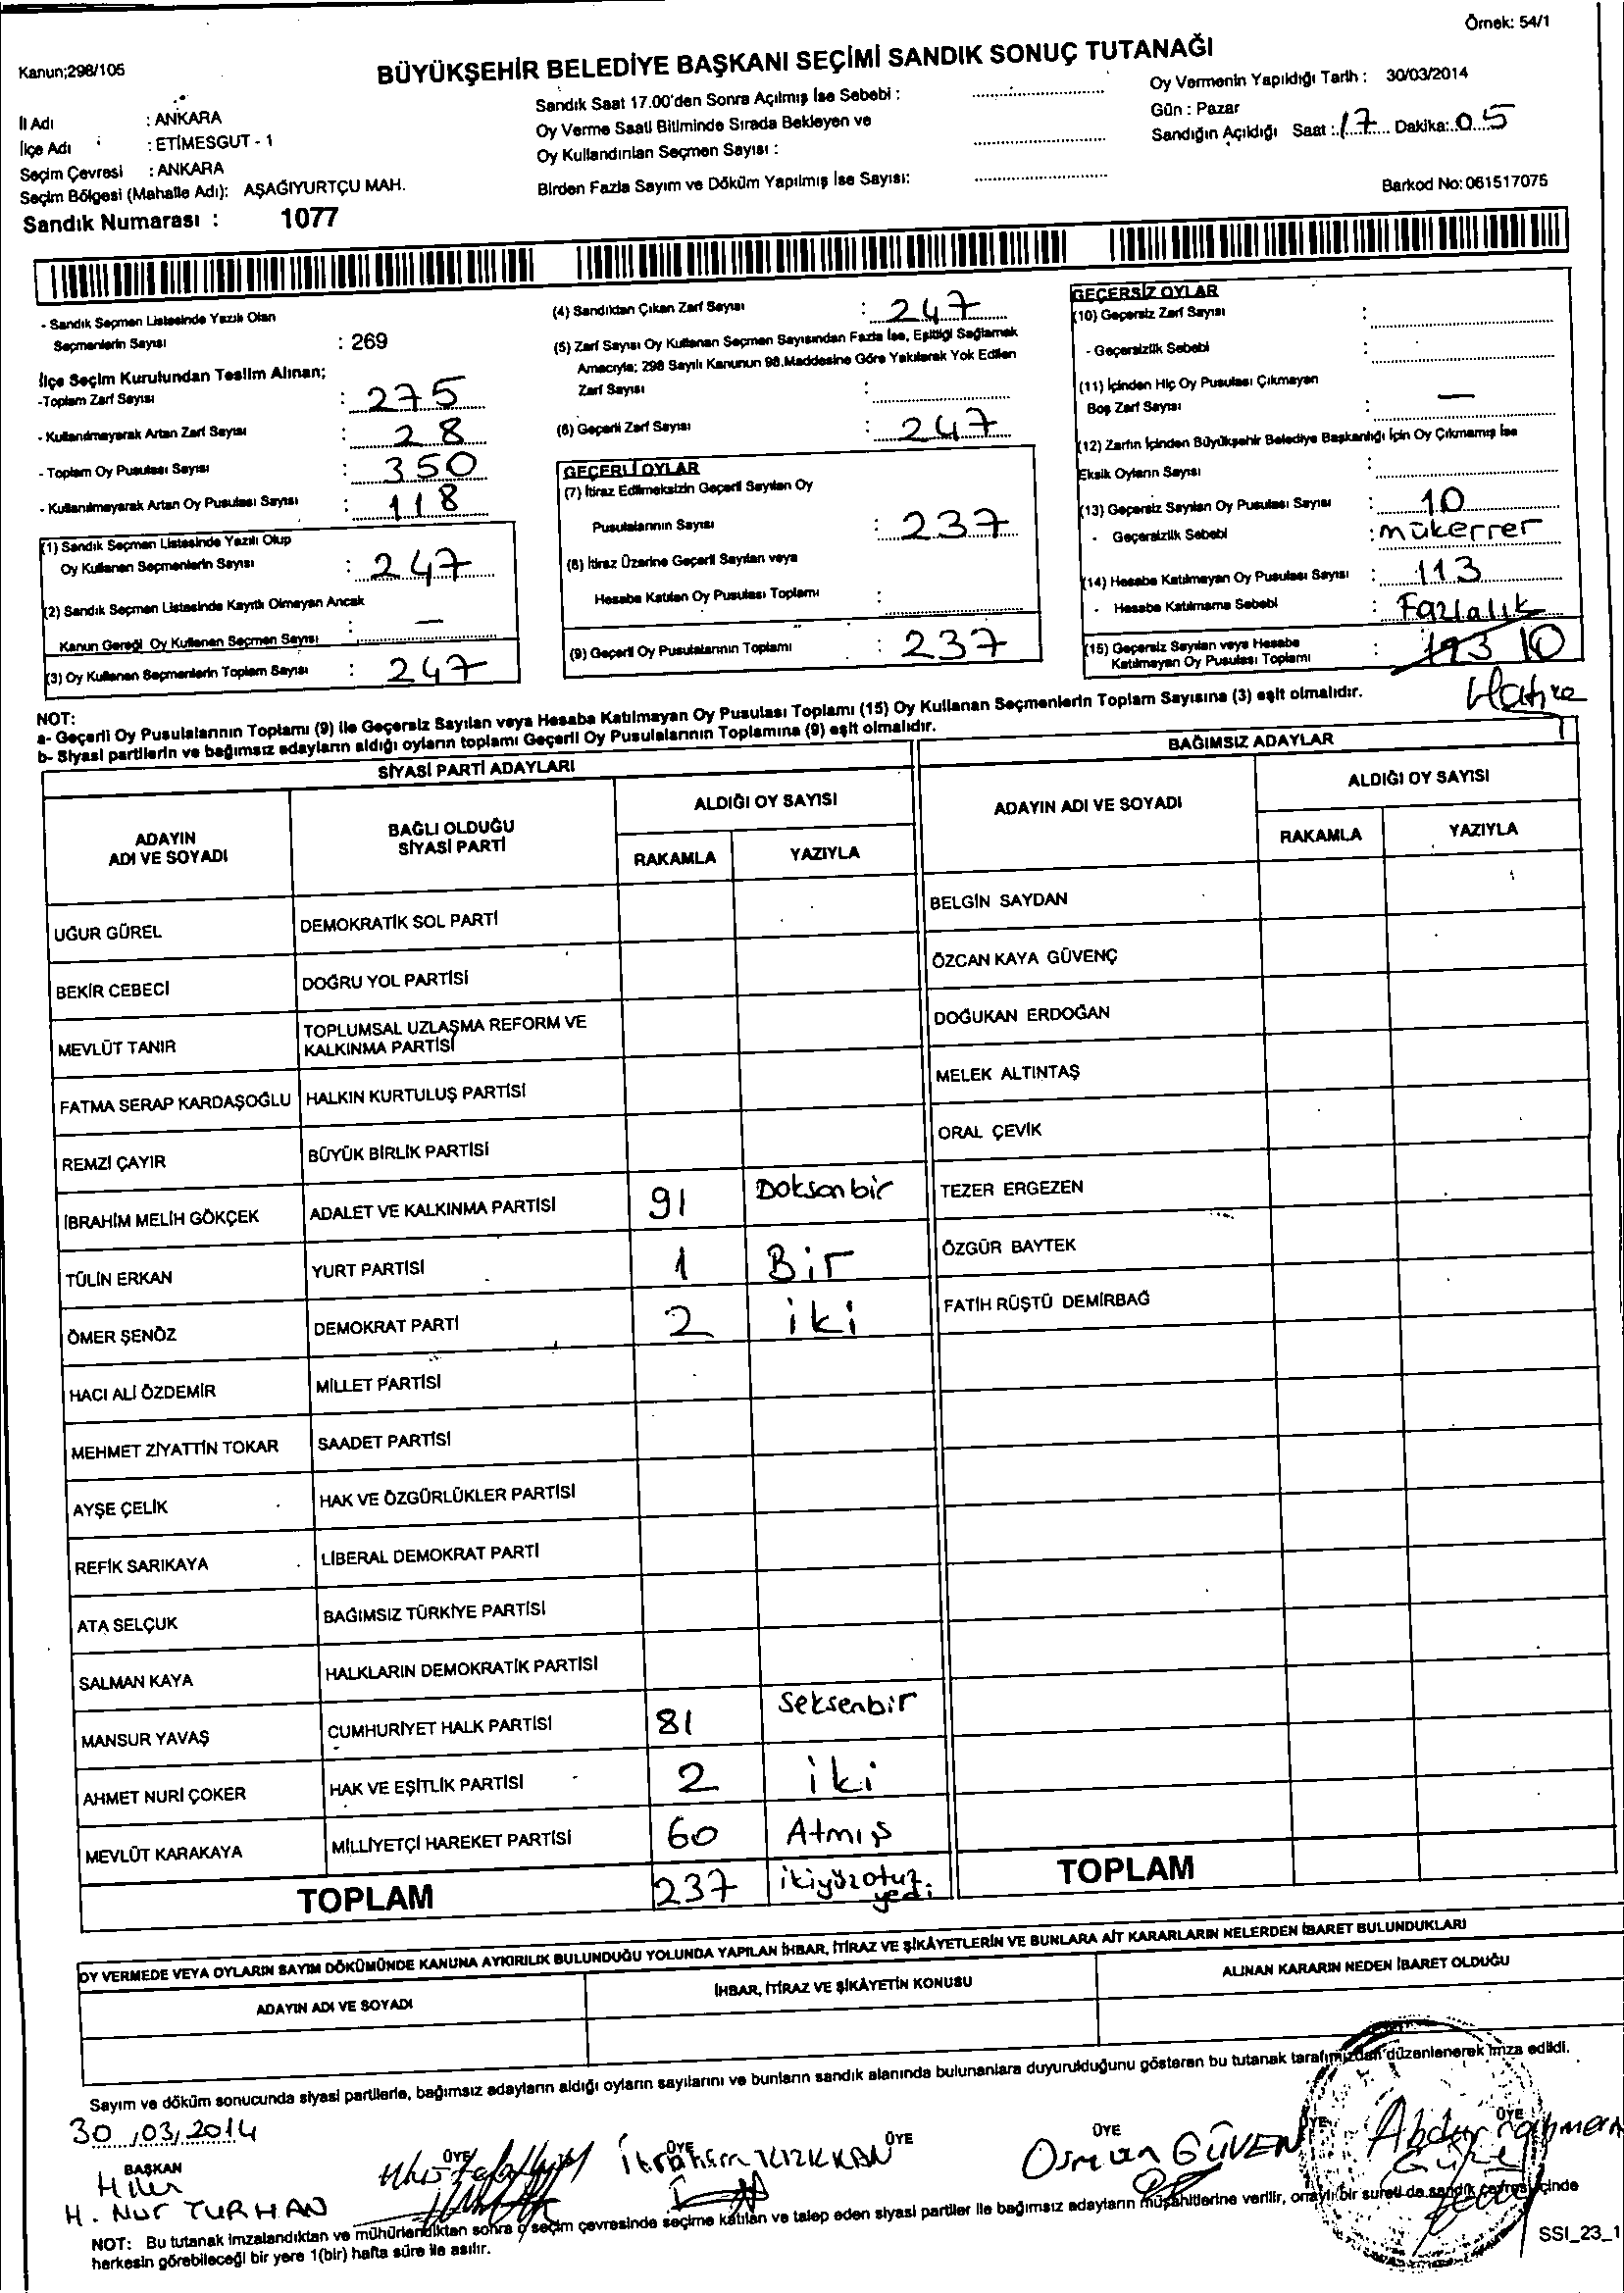 Örnek: 54/1
Kanun;298/105
BÜYÜKŞEHİR BELEDİYE BAŞKANI SEÇİMİ SANDIK SONUÇ TUTANAĞI
İl Adı : ANKARA
İlçe Adı : ETİMESGUT - 1
Seçim Çevresi : ANKARA
Seçim Bölgesi (Mahalle Adı): AŞAĞIYURTÇU MAH.
Sandık Numarası : 1077
Sandık Saat 17.00'den Sonra Açılmış İse Sebebi :
Oy Verme Saati Bitiminde Sırada Bekleyen ve
Oy Kullandırılan Seçmen Sayısı :
Birden Fazla Sayım ve Döküm Yapılmış İse Sayısı:
Oy Vermenin Yapıldığı Tarih : 30/03/2014
Gün : Pazar
Sandığın Açıldığı Saat : 17 Dakika: 05
Barkod No: 061517075
- Sandık Seçmen Listesinde Yazılı Olan
Seçmenlerin Sayısı : 269
İlçe Seçim Kurulundan Teslim Alınan;
-Toplam Zarf Sayısı : 275
- Kullanılmayarak Artan Zarf Sayısı : 28
- Toplam Oy Pusulası Sayısı : 350
- Kullanılmayarak Artan Oy Pusulası Sayısı : 118
(1) Sandık Seçmen Listesinde Yazılı Olup
Oy Kullanan Seçmenlerin Sayısı : 247
(2) Sandık Seçmen Listesinde Kayıtlı Olmayan Ancak
Kanun Gereği Oy Kullanan Seçmen Sayısı : —
(3) Oy Kullanan Seçmenlerin Toplam Sayısı : 247
(4) Sandıktan Çıkan Zarf Sayısı : 247
(5) Zarf Sayısı Oy Kullanan Seçmen Sayısından Fazla İse, Eşitliği Sağlamak
Amacıyla; 298 Sayılı Kanunun 98.Maddesine Göre Yakılarak Yok Edilen
Zarf Sayısı :
(6) Geçerli Zarf Sayısı : 247
GEÇERLİ OYLAR
(7) İtiraz Edilmeksizin Geçerli Sayılan Oy
Pusulalarının Sayısı : 237
(8) İtiraz Üzerine Geçerli Sayılan veya
Hesaba Katılan Oy Pusulası Toplamı :
(9) Geçerli Oy Pusulalarının Toplamı : 237
GEÇERSİZ OYLAR
(10) Geçersiz Zarf Sayısı :
- Geçersizlik Sebebi :
(11) İçinden Hiç Oy Pusulası Çıkmayan
Boş Zarf Sayısı : —
(12) Zarfın İçinden Büyükşehir Belediye Başkanlığı İçin Oy Çıkmamış İse
Eksik Oyların Sayısı :
(13) Geçersiz Sayılan Oy Pusulası Sayısı : 10
- Geçersizlik Sebebi : mükerrer
(14) Hesaba Katılmayan Oy Pusulası Sayısı : 113
- Hesaba Katılmama Sebebi : Fazlalık
(15) Geçersiz Sayılan veya Hesaba
Katılmayan Oy Pusulası Toplamı : 10
NOT:
a- Geçerli Oy Pusulalarının Toplamı (9) ile Geçersiz Sayılan veya Hesaba Katılmayan Oy Pusulası Toplamı (15) Oy Kullanan Seçmenlerin Toplam Sayısına (3) eşit olmalıdır.
b- Siyasi partilerin ve bağımsız adayların aldığı oyların toplamı Geçerli Oy Pusulalarının Toplamına (9) eşit olmalıdır.
SİYASİ PARTİ ADAYLARI
ADAYIN ADI VE SOYADI
BAĞLI OLDUĞU SİYASİ PARTİ
ALDIĞI OY SAYISI
RAKAMLA YAZIYLA
UĞUR GÜREL DEMOKRATİK SOL PARTİ
BEKİR CEBECİ DOĞRU YOL PARTİSİ
MEVLÜT TANIR TOPLUMSAL UZLAŞMA REFORM VE KALKINMA PARTİSİ
FATMA SERAP KARDAŞOĞLU HALKIN KURTULUŞ PARTİSİ
REMZİ ÇAYIR BÜYÜK BİRLİK PARTİSİ
İBRAHİM MELİH GÖKÇEK ADALET VE KALKINMA PARTİSİ 91 Doksanbir
TÜLİN ERKAN YURT PARTİSİ 1 Bir
ÖMER ŞENÖZ DEMOKRAT PARTİ 2 iki
HACI ALİ ÖZDEMİR MİLLET PARTİSİ
MEHMET ZİYATTİN TOKAR SAADET PARTİSİ
AYŞE ÇELİK HAK VE ÖZGÜRLÜKLER PARTİSİ
REFİK SARIKAYA LİBERAL DEMOKRAT PARTİ
ATA SELÇUK BAĞIMSIZ TÜRKİYE PARTİSİ
SALMAN KAYA HALKLARIN DEMOKRATİK PARTİSİ
MANSUR YAVAŞ CUMHURİYET HALK PARTİSİ 81 Seksenbir
AHMET NURİ ÇOKER HAK VE EŞİTLİK PARTİSİ 2 iki
MEVLÜT KARAKAYA MİLLİYETÇİ HAREKET PARTİSİ 60 Atmış
TOPLAM 237 ikiyüzotuz yedi
BAĞIMSIZ ADAYLAR
ADAYIN ADI VE SOYADI
ALDIĞI OY SAYISI
RAKAMLA YAZIYLA
BELGİN SAYDAN
ÖZCAN KAYA GÜVENÇ
DOĞUKAN ERDOĞAN
MELEK ALTINTAŞ
ORAL ÇEVİK
TEZER ERGEZEN
ÖZGÜR BAYTEK
FATİH RÜŞTÜ DEMİRBAĞ
TOPLAM
OY VERMEDE VEYA OYLARIN SAYIM DÖKÜMÜNDE KANUNA AYKIRILIK BULUNDUĞU YOLUNDA YAPILAN İHBAR, İTİRAZ VE ŞİKÂYETLERİN VE BUNLARA AİT KARARLARIN NELERDEN İBARET BULUNDUKLARI
ADAYIN ADI VE SOYADI İHBAR, İTİRAZ VE ŞİKÂYETİN KONUSU ALINAN KARARIN NEDEN İBARET OLDUĞU
Sayım ve döküm sonucunda siyasi partilerle, bağımsız adayların aldığı oyların sayılarını ve bunların sandık alanında bulunanlara duyurulduğunu gösteren bu tutanak tarafımızdan düzenlenerek imza edildi.
30/03/2014
BAŞKAN ÜYE ÜYE ÜYE ÜYE ÜYE ÜYE
H. Nur TURHAN
İbrahim KIZILKAN
Osman GÜVEN
Abdurrahman
NOT: Bu tutanak imzalandıktan ve mühürlendikten sonra o seçim çevresinde seçime katılan ve talep eden siyasi partiler ile bağımsız adayların müşahitlerine verilir, onaylı bir sureti de sandık çevresi içinde
herkesin görebileceği bir yere 1(bir) hafta süre ile asılır.
SSI_23_1